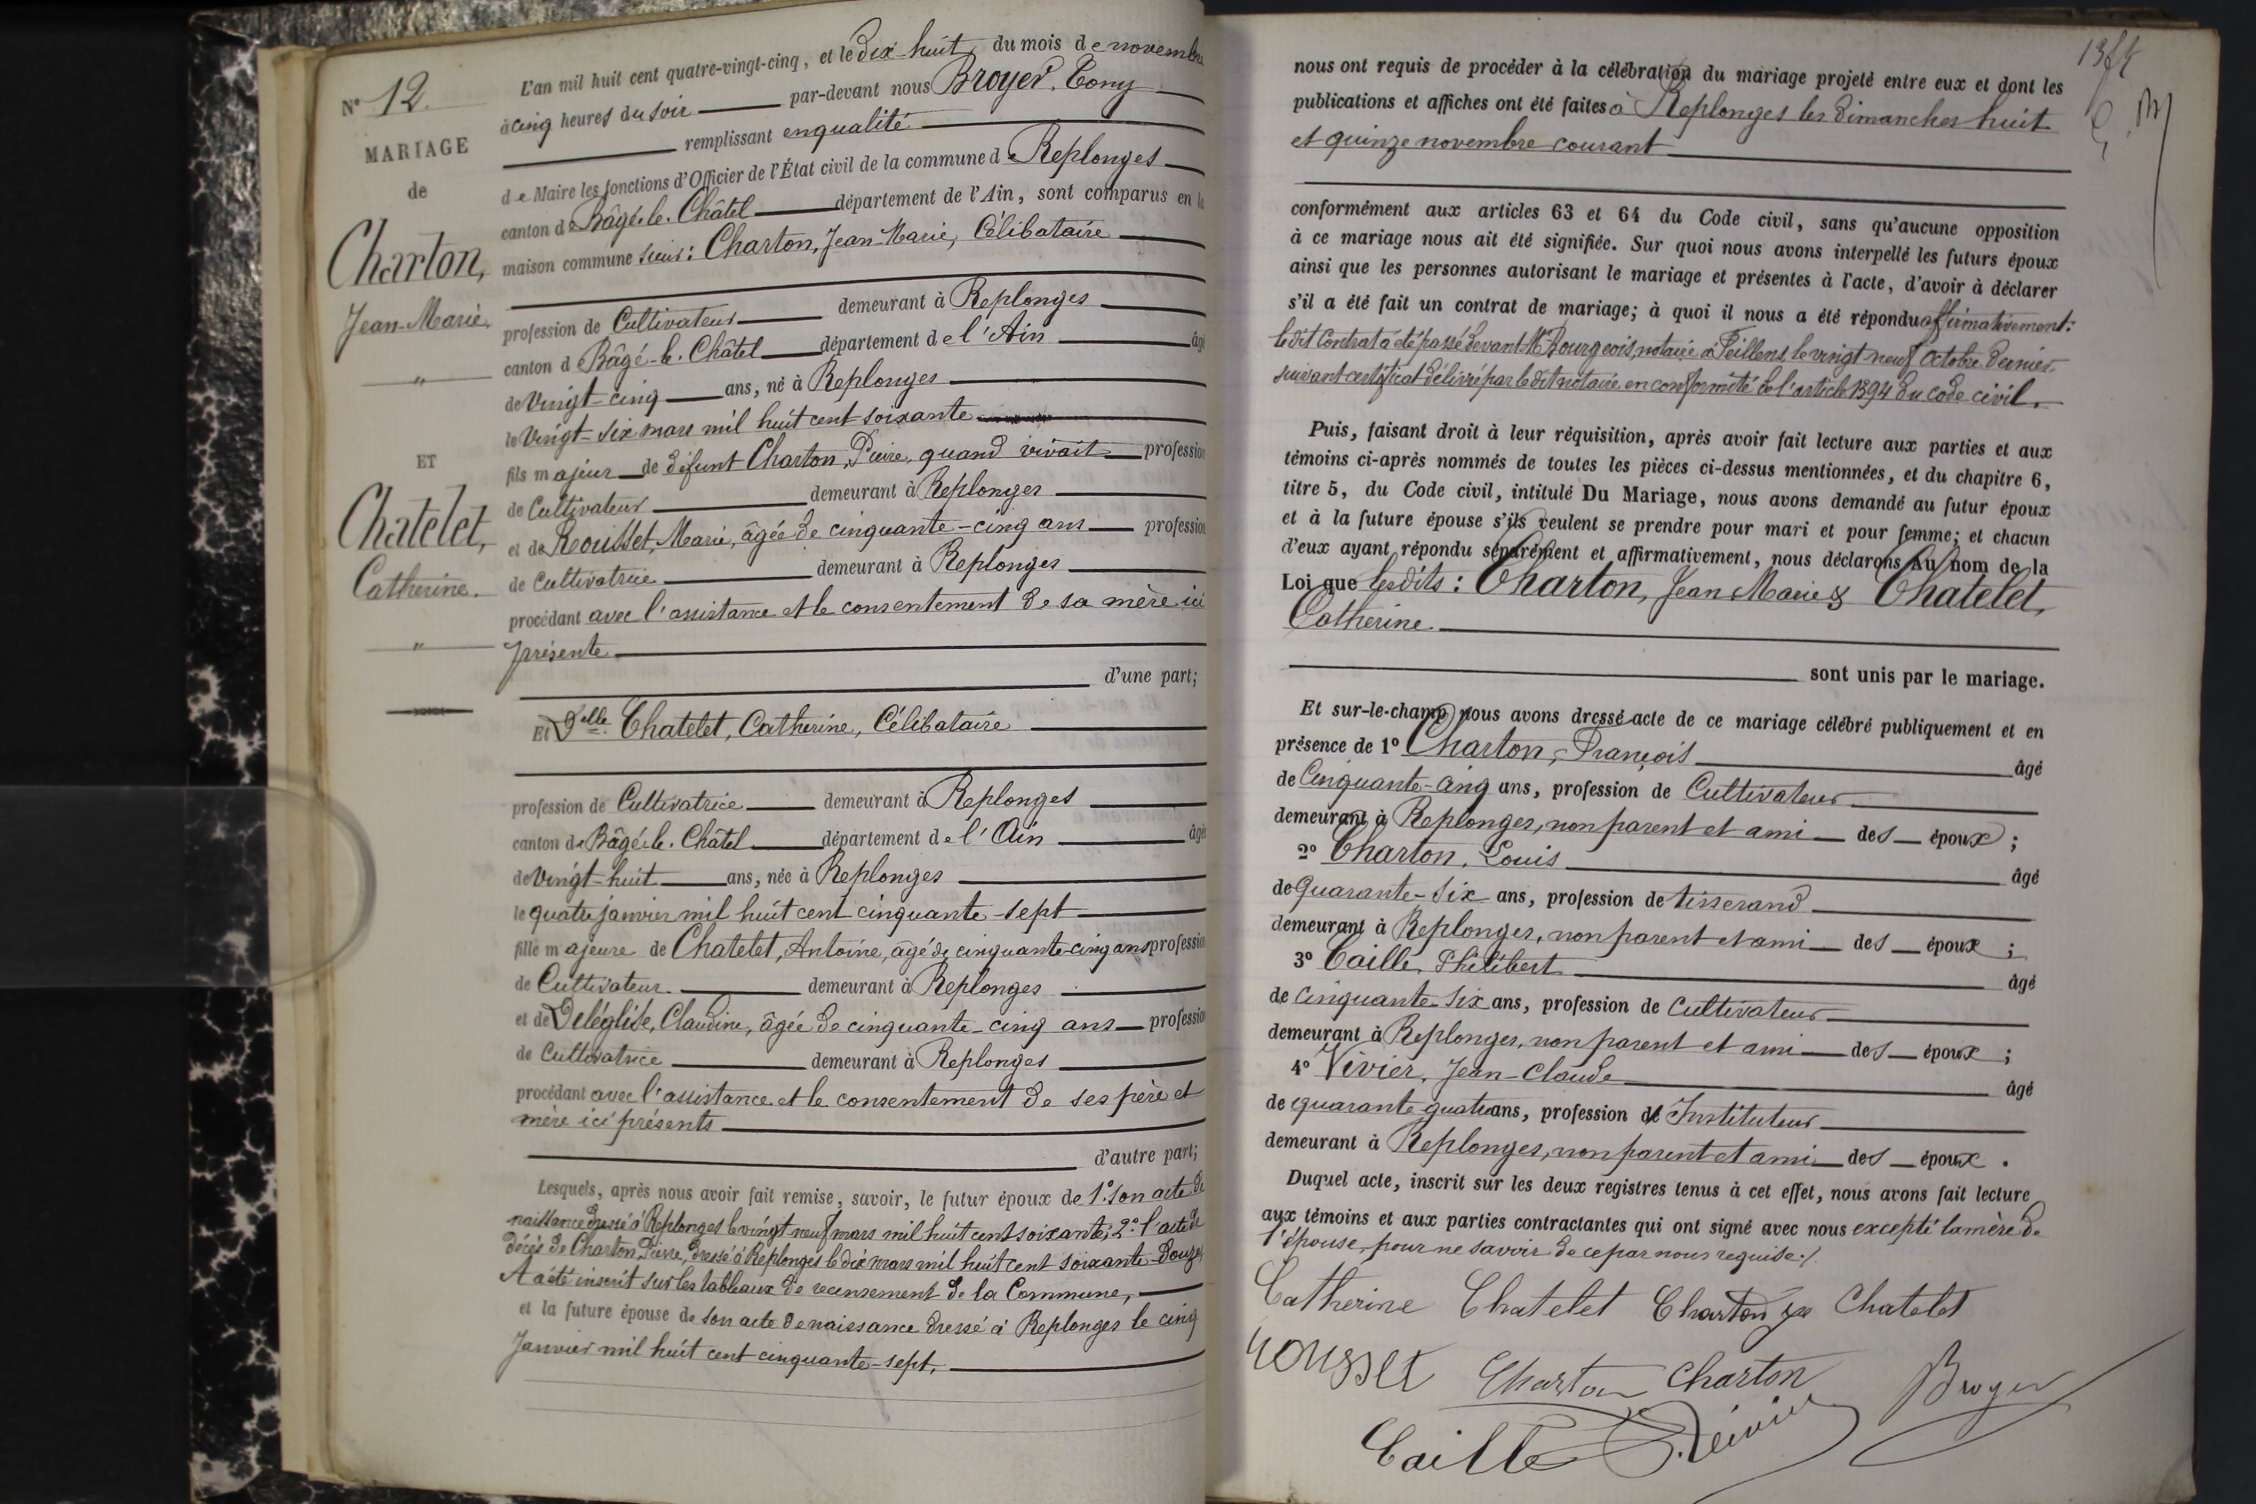 N° 12.
MARIAGE
de
Charton,
Jean-Marie.
"
ET
Chatelet,
Catherine.
"
L'an mil huit cent quatre-vingt-cinq, et le dix-huit, du mois de novembre
à cinq heures du soir par-devant nous Broyer, Tony
remplissant en qualité
de Maire les fonctions d'Officier de l'État civil de la commune de Replonges
canton de Bâgé-le-Châtel département de l'Ain, sont comparus en la
maison commune sieur : Charton, Jean-Marie, Célibataire
profession de Cultivateur demeurant à Replonges
canton d Bâgé-le-Châtel département de l'Ain âgé
de vingt-cinq ans, né à Replonges
le vingt-six mars mil huit cent soixante
fils majeur de défunt Charton, Pierre, quand vivait profession
de Cultivateur demeurant à Replonges
et de Rousset, Marie, âgée de cinquante-cinq ans profession
de Cultivatrice demeurant à Replonges
procédant avec l'assistance et le consentement de sa mère ici
présente
d'une part;
Et Delle Chatelet, Catherine, Célibataire
profession de Cultivatrice demeurant à Replonges
canton de Bâgé-le-Châtel département de l'Ain âgée
de vingt-huit ans, née à Replonges
le quatre janvier mil huit cent cinquante-sept
fille majeure de Chatelet, Antoine, âgé de cinquante-cinq ans profession
de Cultivateur demeurant à Replonges
et de Deléglise, Claudine, âgée de cinquante-cinq ans profession
de Cultivatrice demeurant à Replonges
procédant avec l'assistance et le consentement de ses père et
mère ici présents
d'autre part;
Lesquels, après nous avoir fait remise, savoir, le futur époux de 1° son acte de
naissance dressé à Replonges le vingt-neuf mars mil huit cent soixante; 2° l'acte de
décès de Charton, Pierre, dressé à Replonges le dix mars mil huit cent soixante-douze,
Et a été inscrit sur les tableaux de recensement de la Commune,
et la future épouse de son acte de naissance dressé à Replonges le cinq
Janvier mil huit cent cinquante-sept,
nous ont requis de procéder à la célébration du mariage projeté entre eux et dont les
publications et affiches ont été faites à Replonges les dimanches huit
et quinze novembre courant
conformément aux articles 63 et 64 du Code civil, sans qu'aucune opposition
à ce mariage nous ait été signifiée. Sur quoi nous avons interpellé les futurs époux
ainsi que les personnes autorisant le mariage et présentes à l'acte, d'avoir à déclarer
s'il a été fait un contrat de mariage; à quoi il nous a été répondu affirmativement :
le dit Contrat a été passé devant Me Bourgeois, notaire à Feillens, le vingt-neuf Octobre dernier
suivant certificat délivré par le dit notaire en conformité de l'article 1394 du code civil.
Puis, faisant droit à leur réquisition, après avoir fait lecture aux parties et aux
témoins ci-après nommés de toutes les pièces ci-dessus mentionnées, et du chapitre 6,
titre 5, du Code civil, intitulé Du Mariage, nous avons demandé au futur époux
et à la future épouse s'ils veulent se prendre pour mari et pour femme; et chacun
d'eux ayant répondu séparément et affirmativement, nous déclarons au nom de la
Loi que lesdits : Charton, Jean Marie & Chatelet,
Catherine
sont unis par le mariage.
Et sur-le-champ nous avons dressé acte de ce mariage célébré publiquement et en
présence de 1° Charton, François âgé
de Cinquante-cinq ans, profession de Cultivateur
demeurant à Replonges, non parent et ami des époux ;
2° Charton, Louis âgé
de Quarante-six ans, profession de tisserand
demeurant à Replonges, non parent et ami des époux ;
3° Caille, Philibert âgé
de cinquante-six ans, profession de cultivateur
demeurant à Replonges, non parent et ami des époux ;
4° Vivier, Jean-Claude âgé
de quarante quatre ans, profession d'Instituteur
demeurant à Replonges, non parent et ami des époux.
Duquel acte, inscrit sur les deux registres tenus à cet effet, nous avons fait lecture
aux témoins et aux parties contractantes qui ont signé avec nous excepté la mère de
l'épouse, pour ne savoir de ce par nous requise./.
Catherine Chatelet Charton Chatelet
Rousset Charton Charton Broyer
Caille Vivier